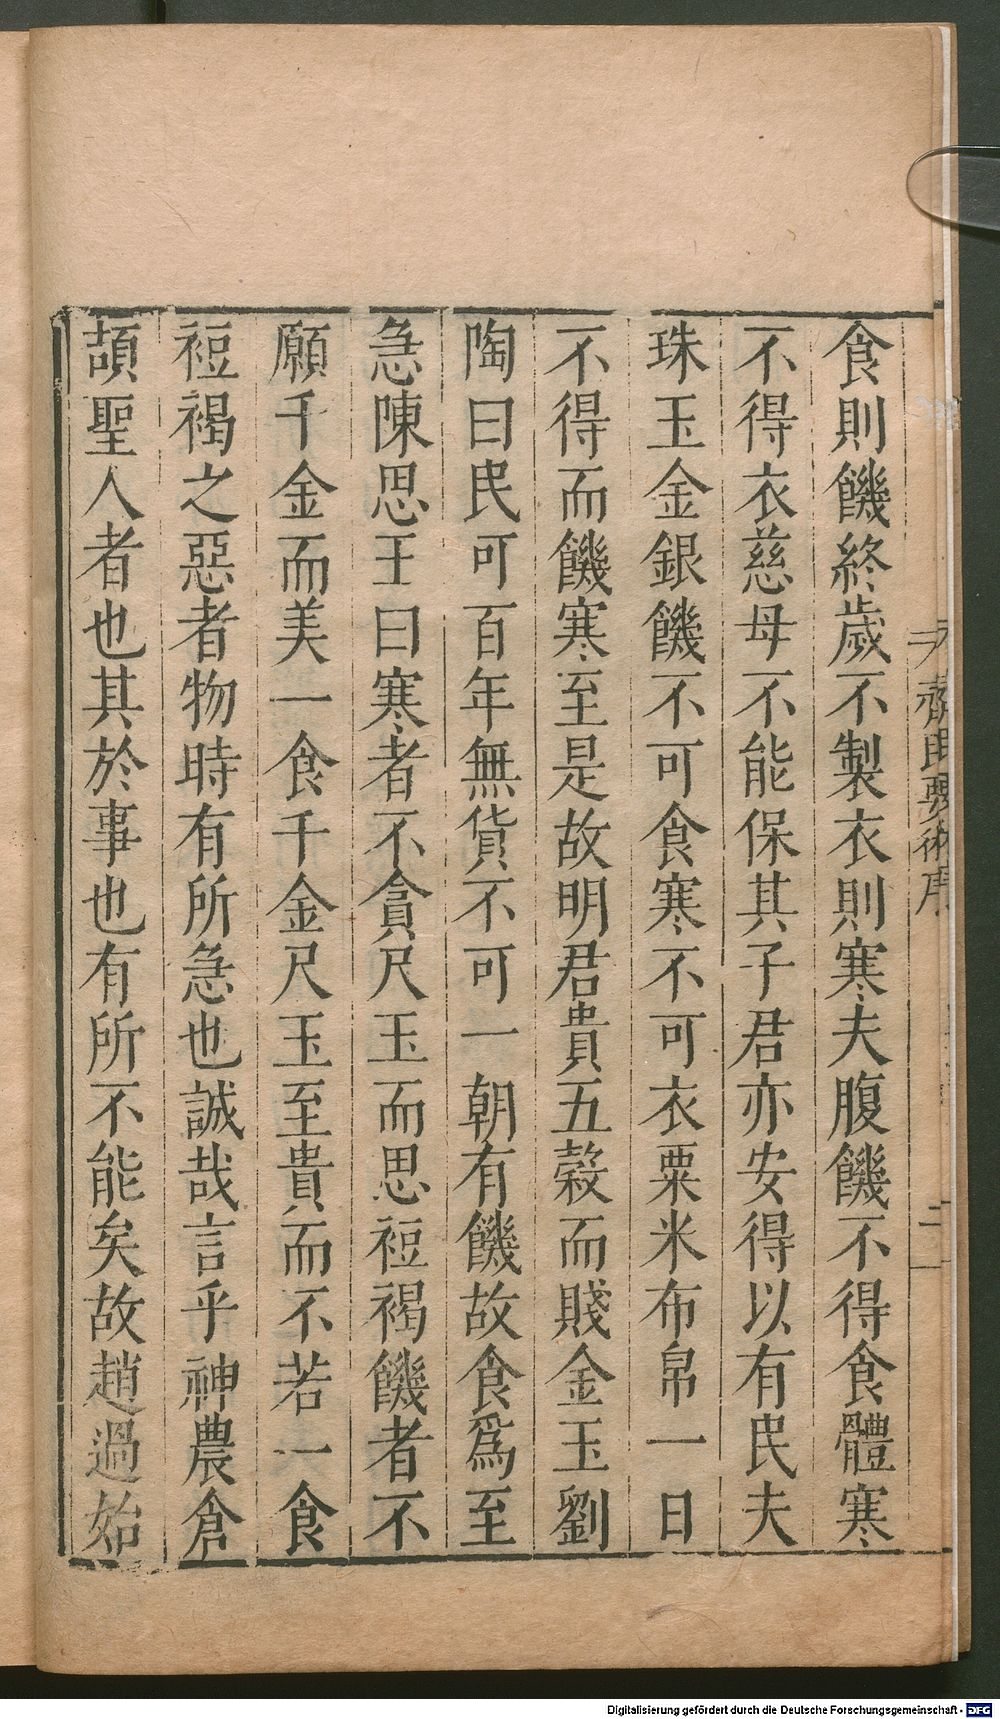 食則饑終歲不製衣則寒夫腹饑不得食體寒
不得衣慈母不能保其子君亦安得以有民夫
珠玉金銀饑不可食寒不可衣粟米布帛一日
不得而饑寒至是故明君貴五穀而賤金玉劉
陶曰民可百年無貨不可一朝有饑故食爲至
急陳思王曰寒者不貪尺玉而思裋褐饑者不
願千金而美一食千金尺玉至貴而不若一食
裋褐之惡者物時有所急也誠哉言乎神農倉
頡聖人者也其於事也有所不能矣故趙過始
齊民要術序
二
Digitalisierung gefördert durch die Deutsche Forschungsgemeinschaft - DFG